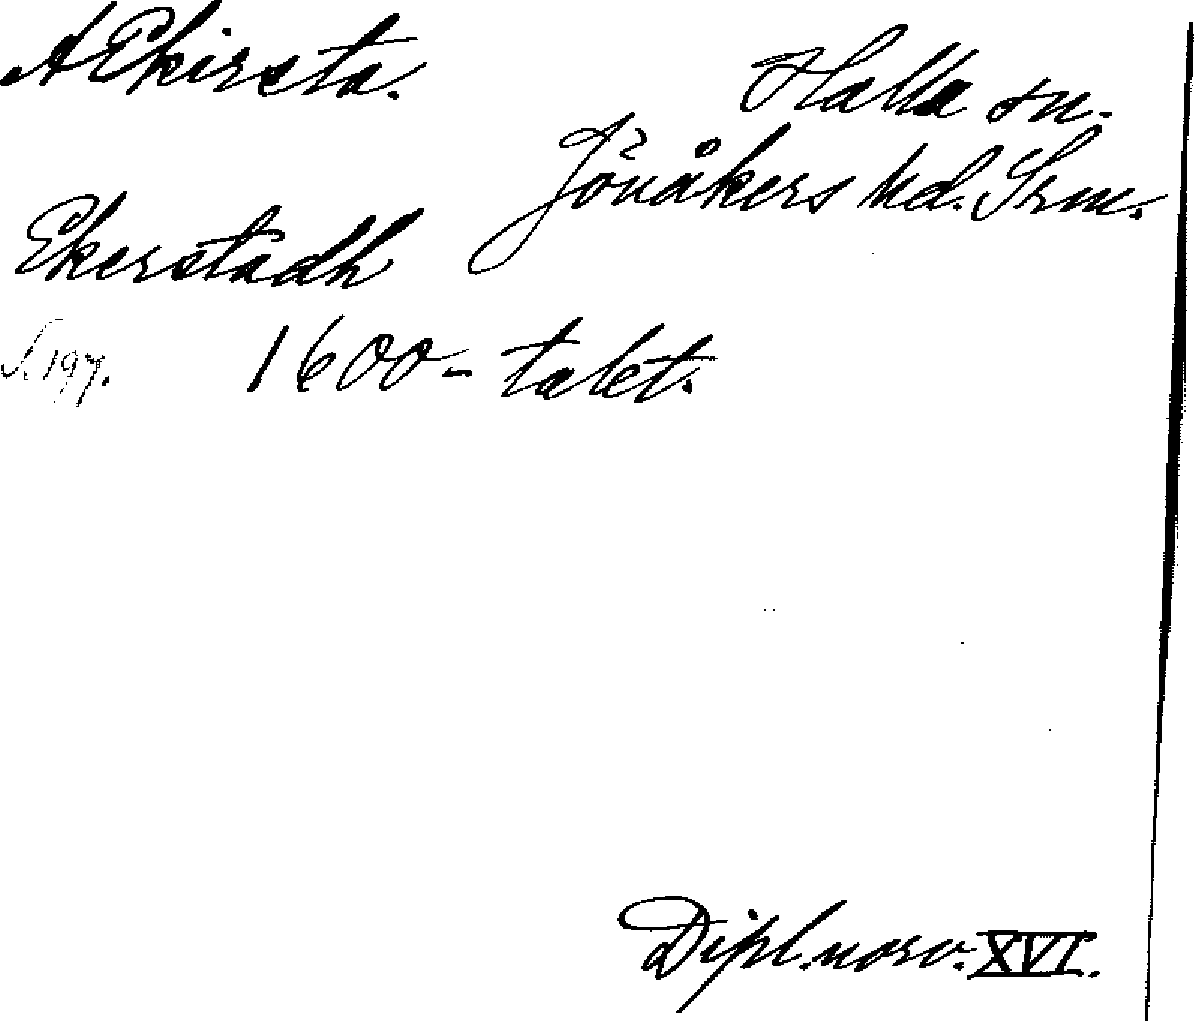 AEkirsta.
Halla sn.
Jönåkers hd. Srm.
Ekerstadh
s. 197. 1600-talet.
Dipl. norv. XVI.